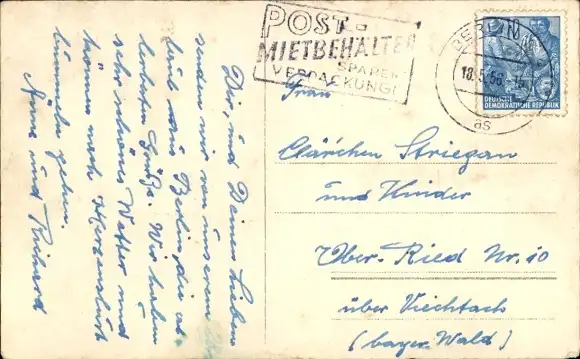 POST-
MIETBEHÄLTER
SPAREN
VERPACKUNG!
BERLIN
18.5.56
as
DEUTSCHE
DEMOKRATISCHE REPUBLIK
Frau
Clärchen Striegan
und Kinder
Ober-Ried Nr. 10
über Viechtach
(bayer. Wald)
Dir, und Deinen Lieben
senden wir von unserem
aus Berlin, die
Grüße. Wir haben
sehr schönes Wetter und
können nach Herzenslust
bummeln gehen.
und Richard